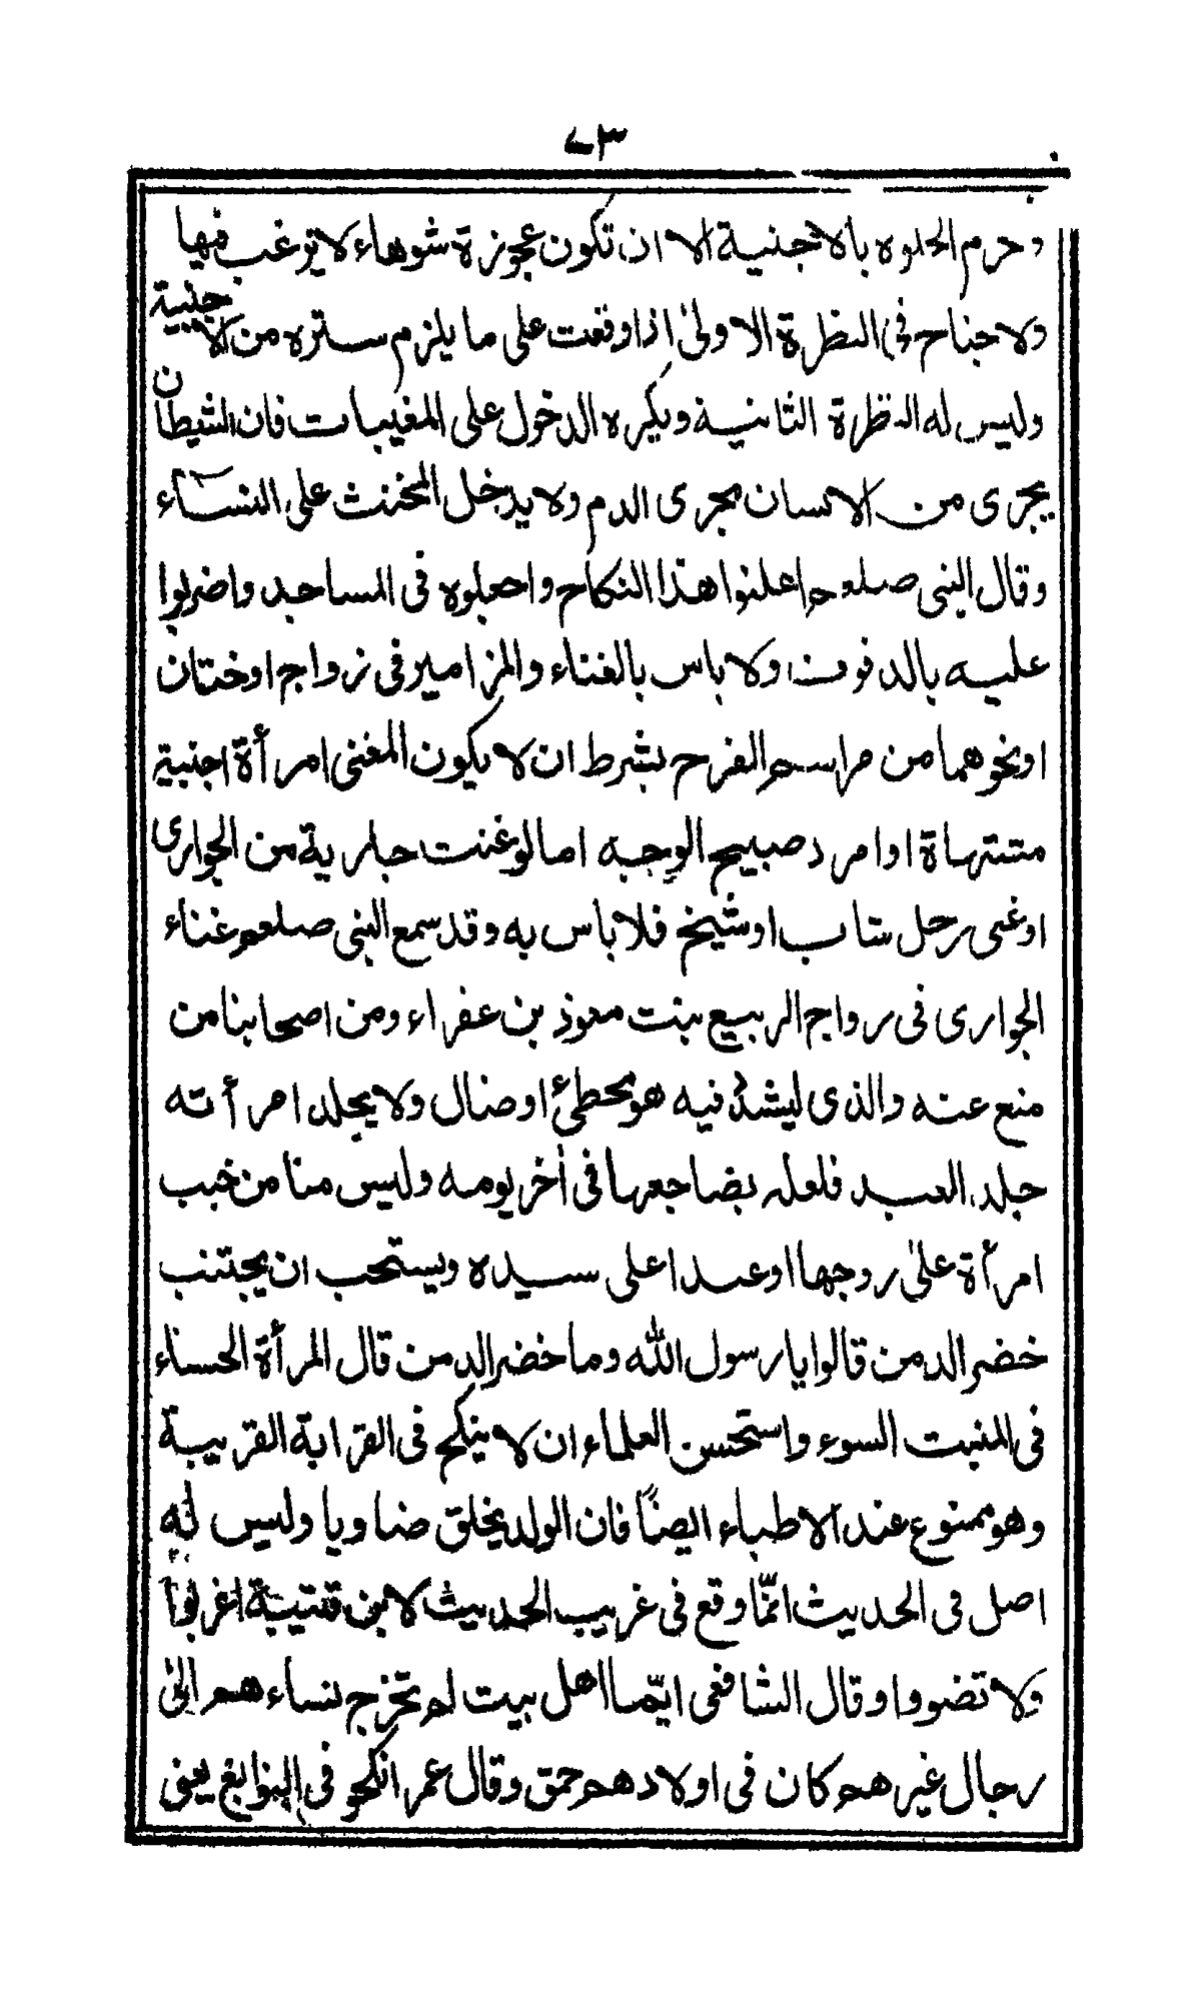 ٧٣
وحرم الخلوه بالاجنبية الا ان تكون عجوزة شوهاء لا يرغب فيها
ولا جناح في النظرة الاولىٰ اذا وقعت على ما يلزم ستره من الاجنبية
وليس له النظرة الثانية ويكره الدخول على المغيبات فان الشيطان
يجرى من الانسان مجرى الدم ولا يدخل المخنث على النساء
وقال النبى صلعم اعلنوا هذا النكاح واجعلوه فى المساجد واضربوا
عليه بالدفوف ولا باس بالغناء والمزامير فى زواج او ختان
او نحوهما من مراسم الفرح بشرط ان لا يكون المغنى امرأة اجنبية
مشتهاة او امرد صبيح الوجه اما لو غنت جارية من الجوارى
او غنى رجل شاب او شيخ فلا باس به وقد سمع النبى صلعم غناء
الجوارى فى زواج الربيع بنت معوذ بن عفراء ومن اصحابنا من
منع عنه والذى يشدّد فيه هو مخطئ او ضال ولا يجلد امرأته
جلد العبد فلعله يضاجعها فى اٰخر يومه وليس منا من خبب
امرأة علىٰ زوجها او عبدا على سيده ويستحب ان يجتنب
خضر الدمن قالوا يا رسول الله وما خضر الدمن قال المرأة الحسناء
فى المنبت السوء واستحسن العلماء ان لا ينكح فى القرابة القريبة
وهو ممنوع عند الاطباء ايضًا فان الولد يخلق ضاويا وليس له
اصل فى الحديث انّما وقع فى غريب الحديث لابن قتيبة اغربوا
ولا تضووا وقال الشافعى ايّما اهل بيت لم تخرج نساءهم الىٰ
رجال غيرهم كان فى اولادهم حمق وقال عمر انكحو فى النوابغ يعنى